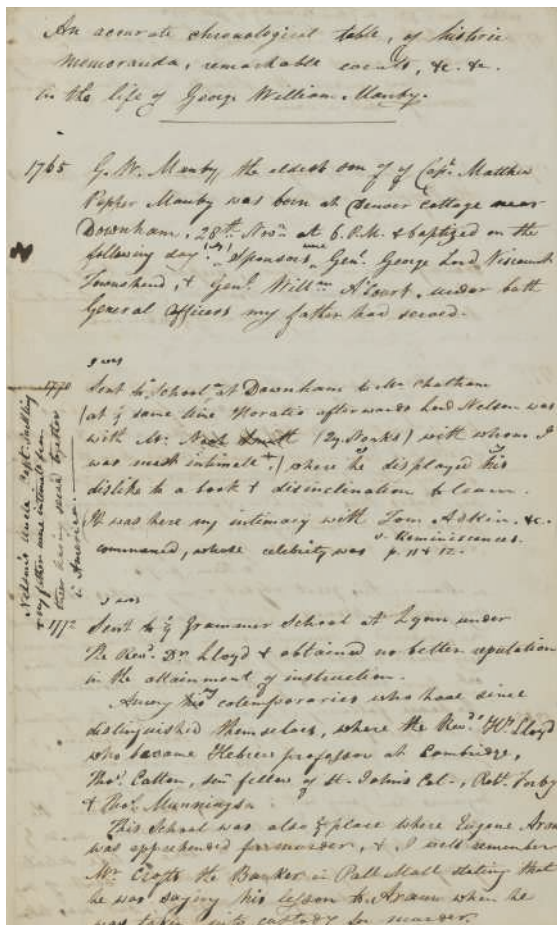 An accurate chronological table, of historic
memoranda, remarkable events, &c. &c.
in the life of George William Manby.
1765 G. W. Manby, the eldest son of Capt. Matthew
Pepper Manby was born at Denver Cottage near
Downham. 28th Novr. at 6. P.M. & baptized on the
following day. Sponsors were Genl. George Lord Viscount
Townshend, & Genl. Willm A'Court, under both
General Officers my father had served.
1770 Sent to School at Downham to Mr Chatham
(at ye same time Horatio afterwards Lord Nelson was
with Mr. Nach Smith (2y Noaks) with whom I
was most intimate +) where he displayed his
dislike to a book & disinclination to learn.
(It was here my intimacy with Tom Adkin. &c.
v. Reminiscences.
commenced, whose celebrity was p. 11 & 12.
Nelson's Uncle Capt. Suckling
& my father were intimate from
their being much together
in America.
1772 Sent to ye Grammer School at Lynn under
The Revd. Dr. Lloyd & obtained no better reputation
in the attainment of instruction.
Among his my cotemporaries who have since
distinguished themselves, where the Revds. Hy. Lloyd
who became Hebrew professor at Cambridge,
Thos. Catton, senr fellow of St. John's Col-, Robt. Forby
& Thos. Munnings
This School was also ye place where Eugene Aram
was apprehended for murder, & I well remember
Mr Crofts the Banker in Pall Mall stating that
he was saying his lesson to Aram when he
was taken into custody for murder.